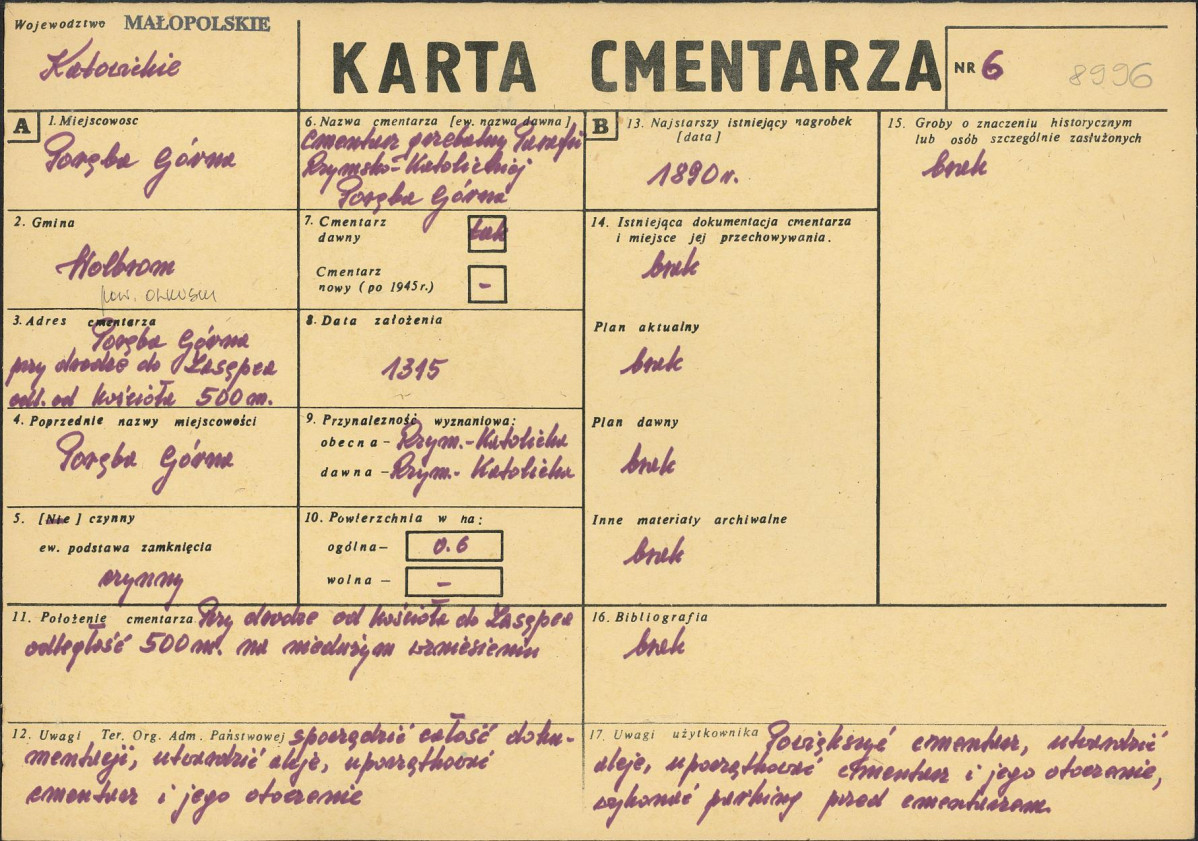 Województwo MAŁOPOLSKIE
Katowickie
KARTA CMENTARZA
NR 6
8996
A
1. Miejscowosc
Poręba Górna
2. Gmina
Wolbrom
pow. OLKUSKI
3. Adres cmentarza
Poręba Górna
przy drodze do
odl. od kościoła 500 m.
4. Poprzednie nazwy miejscowości
Poręba Górna
5. [Nie] czynny
ew. podstawa zamknięcia
czynny
6. Nazwa cmentarza [ew. nazwa dawna]
cmentarz grzebalny Parafii
Rzymsko-Katolickiej
Poręba Górna
7. Cmentarz
dawny
tak
Cmentarz
nowy (po 1945 r.)
-
8. Data założenia
1315
9. Przynalezność wyznaniowa:
obecna - Rzym.-Katolicka
dawna - Rzym.- Katolicka
10. Powierzchnia w ha:
ogólna- 0.6
wolna - -
11. Położenie cmentarza Przy drodze od kościoła do
odległość 500 m. na niedużym wzniesieniu
12. Uwagi Ter. Org. Adm. Państwowej sporządzić całość doku-
mentacji, utwardzić aleje, uporządkować
cmentarz i jego otoczenie
B
13. Najstarszy istniejący nagrobek
[data]
1890 r.
14. Istniejąca dokumentacja cmentarza
i miejsce jej przechowywania.
brak
Plan aktualny
brak
Plan dawny
brak
Inne materiały archiwalne
brak
15. Groby o znaczeniu historycznym
lub osób szczególnie zasłużonych
brak
16. Bibliografia
brak
17. Uwagi użytkownika Powiększyć cmentarz, utwardzić
aleje, uporządkować cmentarz i jego otoczenie,
wykonać parking przed cmentarzem.